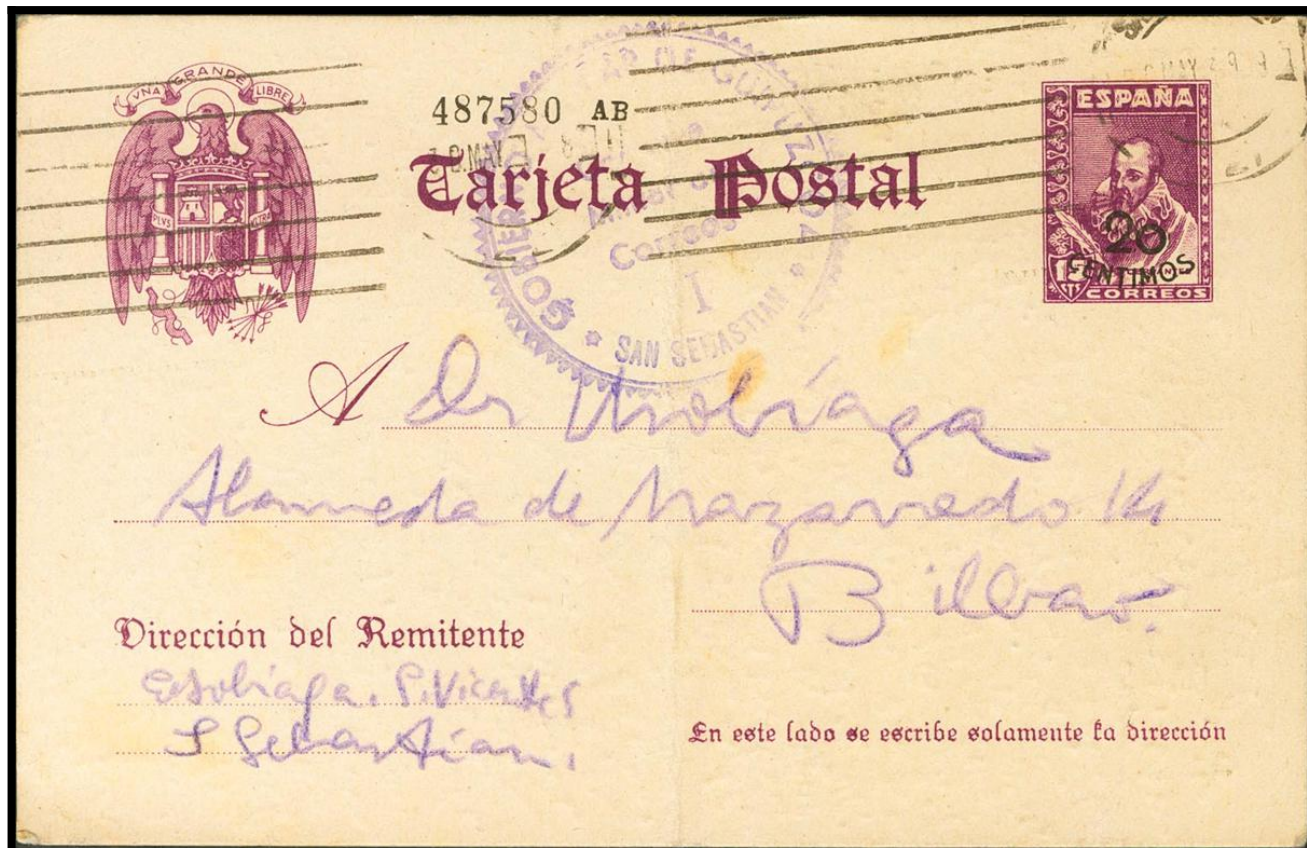 VNA GRANDE LIBRE
PLVS VLTRA
487580 AB
MAY
Tarjeta Postal
GOBIERNO MILITAR DE GUIPUZCOA
Correos
I
* SAN SEBASTIAN *
ESPAÑA
20
CENTIMOS
15
CORREOS
A Dr
Alameda de Mazarredo 14
Bilbao.
Dirección del Remitente
S. Vicente
S Sebastian.
En este lado se escribe solamente la dirección